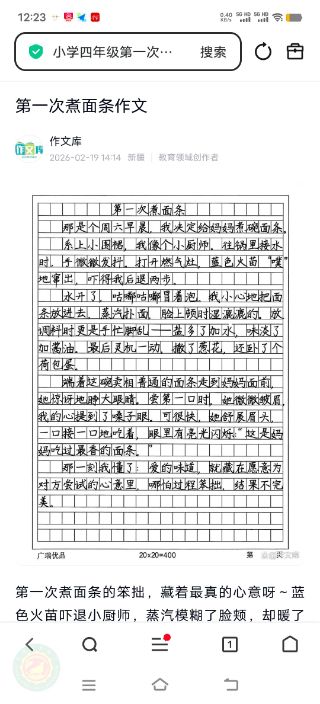 12:23
小学四年级第一次…
搜索
第一次煮面条作文
作文库
2026-02-19 14:14 新疆 | 教育领域创作者
第一次煮面条
那是个周六早晨，我决定给妈妈煮碗面条。
系上小围裙，我像个小厨师。往锅里接水
时，手微微发抖。打开燃气灶，蓝色火苗“噗”
地窜出，吓得我后退两步。
水开了，咕嘟咕嘟冒着泡。我小心地把面
条放进去，蒸汽扑面，脸上顿时湿漉漉的。放
调料时更是手忙脚乱——盐多了加水，味淡了
加酱油。最后灵机一动，撒了葱花，还卧了个
荷包蛋。
端着这碗卖相普通的面条走到妈妈面前，
她惊讶地睁大眼睛。尝第一口时，她微微皱眉，
我的心提到了嗓子眼。可很快，她舒展眉头，
一口接一口地吃着，眼里有亮光闪烁：“这是妈
妈吃过最香的面条。”
那一刻我懂了：爱的味道，就藏在愿意为
对方尝试的心意里，哪怕过程笨拙，结果不完
美。
广瑞优品 20×20=400 第 页
第一次煮面条的笨拙，藏着最真的心意呀～蓝
色火苗吓退小厨师，蒸汽模糊了脸颊，却暖了
1